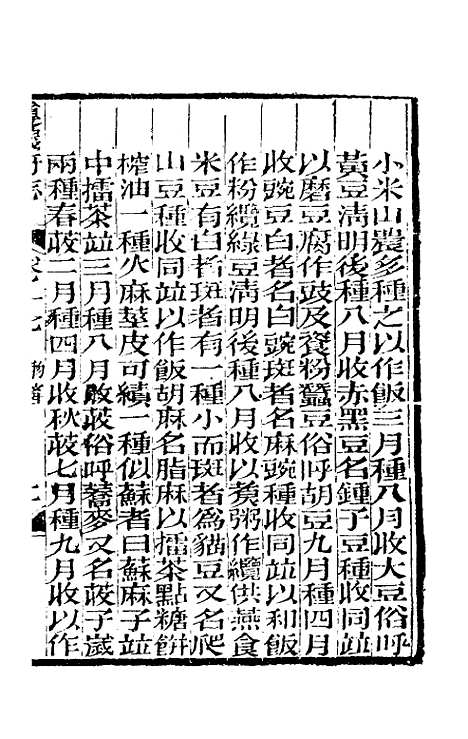 小米山農多種之以作飯三月種八月收大豆俗呼
黃豆清明後種八月收赤黑豆名鍾子豆種收同竝
以磨豆腐作豉及養粉蠶豆俗呼胡豆九月種四月
收豌豆白者名白豌斑者名麻豌種收同竝以和飯
作粉纜綠豆清明後種八月收以養粥作纜供燕食
米豆有白者斑者有一種小而斑者爲貓豆又名爬
山豆種收同竝以作飯胡麻名脂麻以擂茶點糖餅
榨油一種火麻莖皮可績一種似蘇者曰蘇麻子竝
中擂茶竝三月種八月收荍俗呼蕎麥又名荍子歲
兩種春荍二月種四月收秋荍七月種九月收以作
遵義府志 卷十七 物產